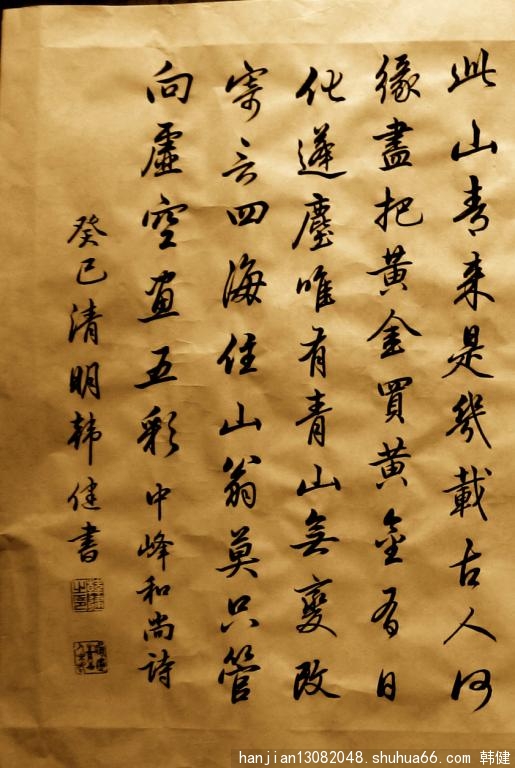 此山青来是幾載古人何
緣盡把黃金買黃金有日
化塵唯有青山無變改
寄言四海住山翁莫只管
向虛空畫五彩中峰和尚詩
癸巳清明韩健書
hanjian13082048.shuhua66.com 韩健